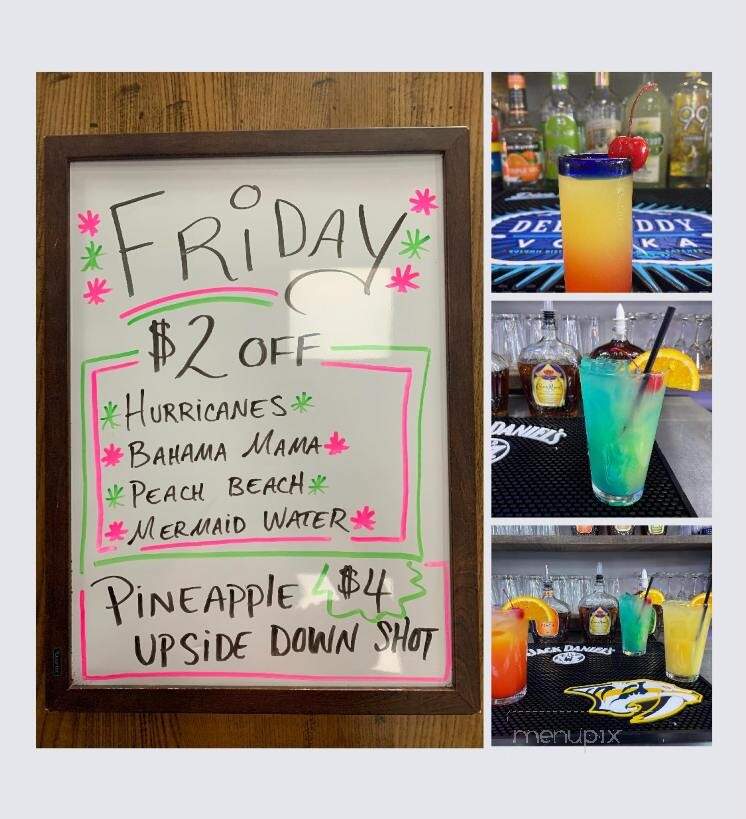 FRIDAY
$2 OFF
HURRICANES
BAHAMA MAMA
PEACH BEACH
MERMAID WATER
PINEAPPLE $4
UPSIDE DOWN SHOT
99
VODKA
JACK DANIEL'S
JACK DANIEL'S
menupix